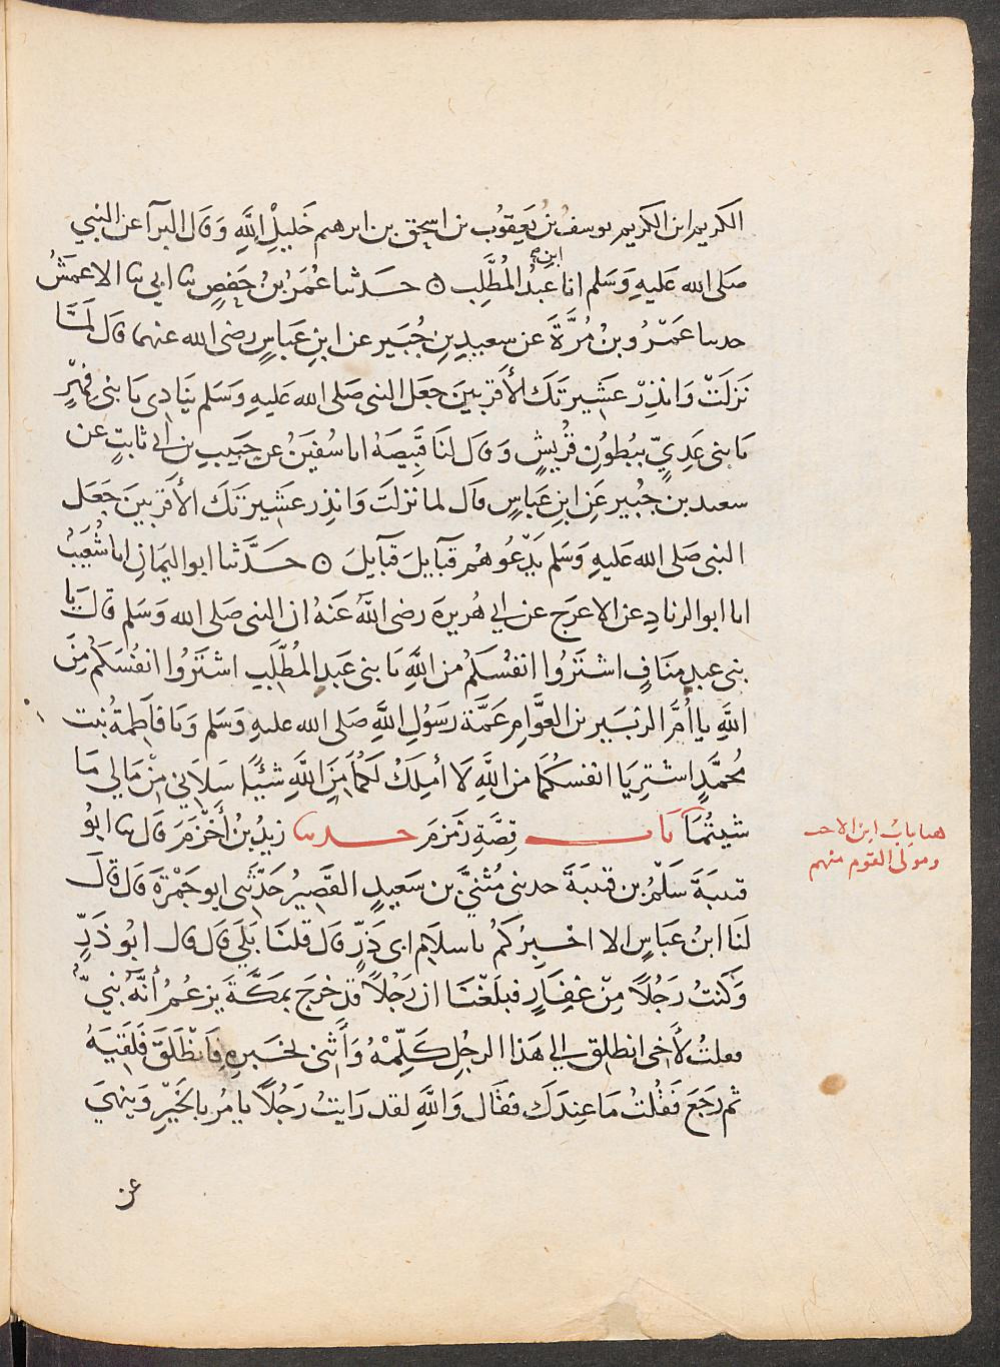 الكريم ابن الكريم يوسف بن يَعقوُب بن اسحق بن ابرهيم خَليلِ اللَّهِ وَقال البرآ عن النبي
صَلى الله عَليهِ وَسَلم انا ابن عَبدُ المُطَّلِب ه حَدثنا عُمَرُ بنُ حَفصٍ ثنا ابي ثنا الاعمَشُ
حدثنا عَمْرُو بنُ مُرَّةَ عَن سعيدِ بنِ جُبَير عن ابنِ عَباسٍ رضى الله عنهما قال لَمَّا
نَزلَتْ وَانذِرْ عَشِيرتَكَ الأَقرَبينَ جعَل النبى صَلى الله عَليهِ وَسَلم يُنَادِى يَا بنى فِهْرٍ
يَا بنى عَدِيٍّ ببُطونِ قُريْشٍ وَقال لنَا قَبِيصَةُ انا سُفيَنُ عن حَبِيبِ بن ابي ثابتٍ عن
سعيد بن جُبير عَنِ ابنِ عَباسٍ قال لما نزلَتَ وَانذِر عَشِيرتَكَ الأَقرَبينَ جَعَل
النبى صَلى الله عَليهِ وَسَلم يَدْعُوهُمْ قبَآيِلَ قبَآيِلَ ه حَدَّثنا ابو اليَمَانِ انا شُعَيبُ
انا ابو الزنادِ عن الاعرَج عن ابي هُريرة رضى اللهُ عَنهُ ان النبى صَلى الله وَسَلم قالَ يَا
بنى عبدِ منَافٍ اشتَرُوا انفُسَكُمْ من اللَّهِ يَا بنى عَبدِ المُطَّلِبِ اشتَرُوا انفُسَكُمْ مِنَ
اللهِ يا أُمَّ الزُبَيرِ بن العوَّامِ عَمَّة رَسُولِ اللَّهِ صَلى الله عليهِ وَسَلم وَيَا فاطمةُ بنت
مُحمَّدٍ اشتَرِيَا انفسكُمَا من اللَّهِ لَا أَمِلكُ لكُمَا مِنَ اللَّهِ شيئًا سَلاَنِي مِنْ مَالِي مَا
شيتُمَا بَاب قِصَّةِ زَمْزَمَ حدثنا زيدُ بنُ أَخْزَمَ قال ثنا ابوُ
قتيبَةَ سَلْمُ بن قتيبَةَ حدثنى مُثنىَّ بن سَعيدٍ القَصِيرُ حَدَّثنى ابو جَمْرَةَ قال قالَ
لنَا ابنُ عبَاسٍ الا اخْبِرُكُمْ باسلَامِ ابى ذَرٍّ قالَ قلنَا بَلَى قالَ قال ابُو ذَرٍّ
وَكنتُ رَجُلًا مِنْ غِفارٍ فبلَغْنَا ان رَجُلًا قدْ خرَج بمَكَّةَ يزعُمُ أَنَّهُ نبيٌّ
فقلتُ لأَخِى انطلِق الي هَذا الرجُلِ كَلِّمْهُ وَأتنى بخبَرهِ فانْطَلَقَ فَلَقِيَهُ
ثم رَجَعَ فَقُلتُ مَا عِندَكَ فقَال وَاللَّهِ لقد رَايتُ رَجُلًا يامُر بالخَيْرِ وَينهَى
عن
هنا بابُ ابن الاخت
ومولى القوم منهم